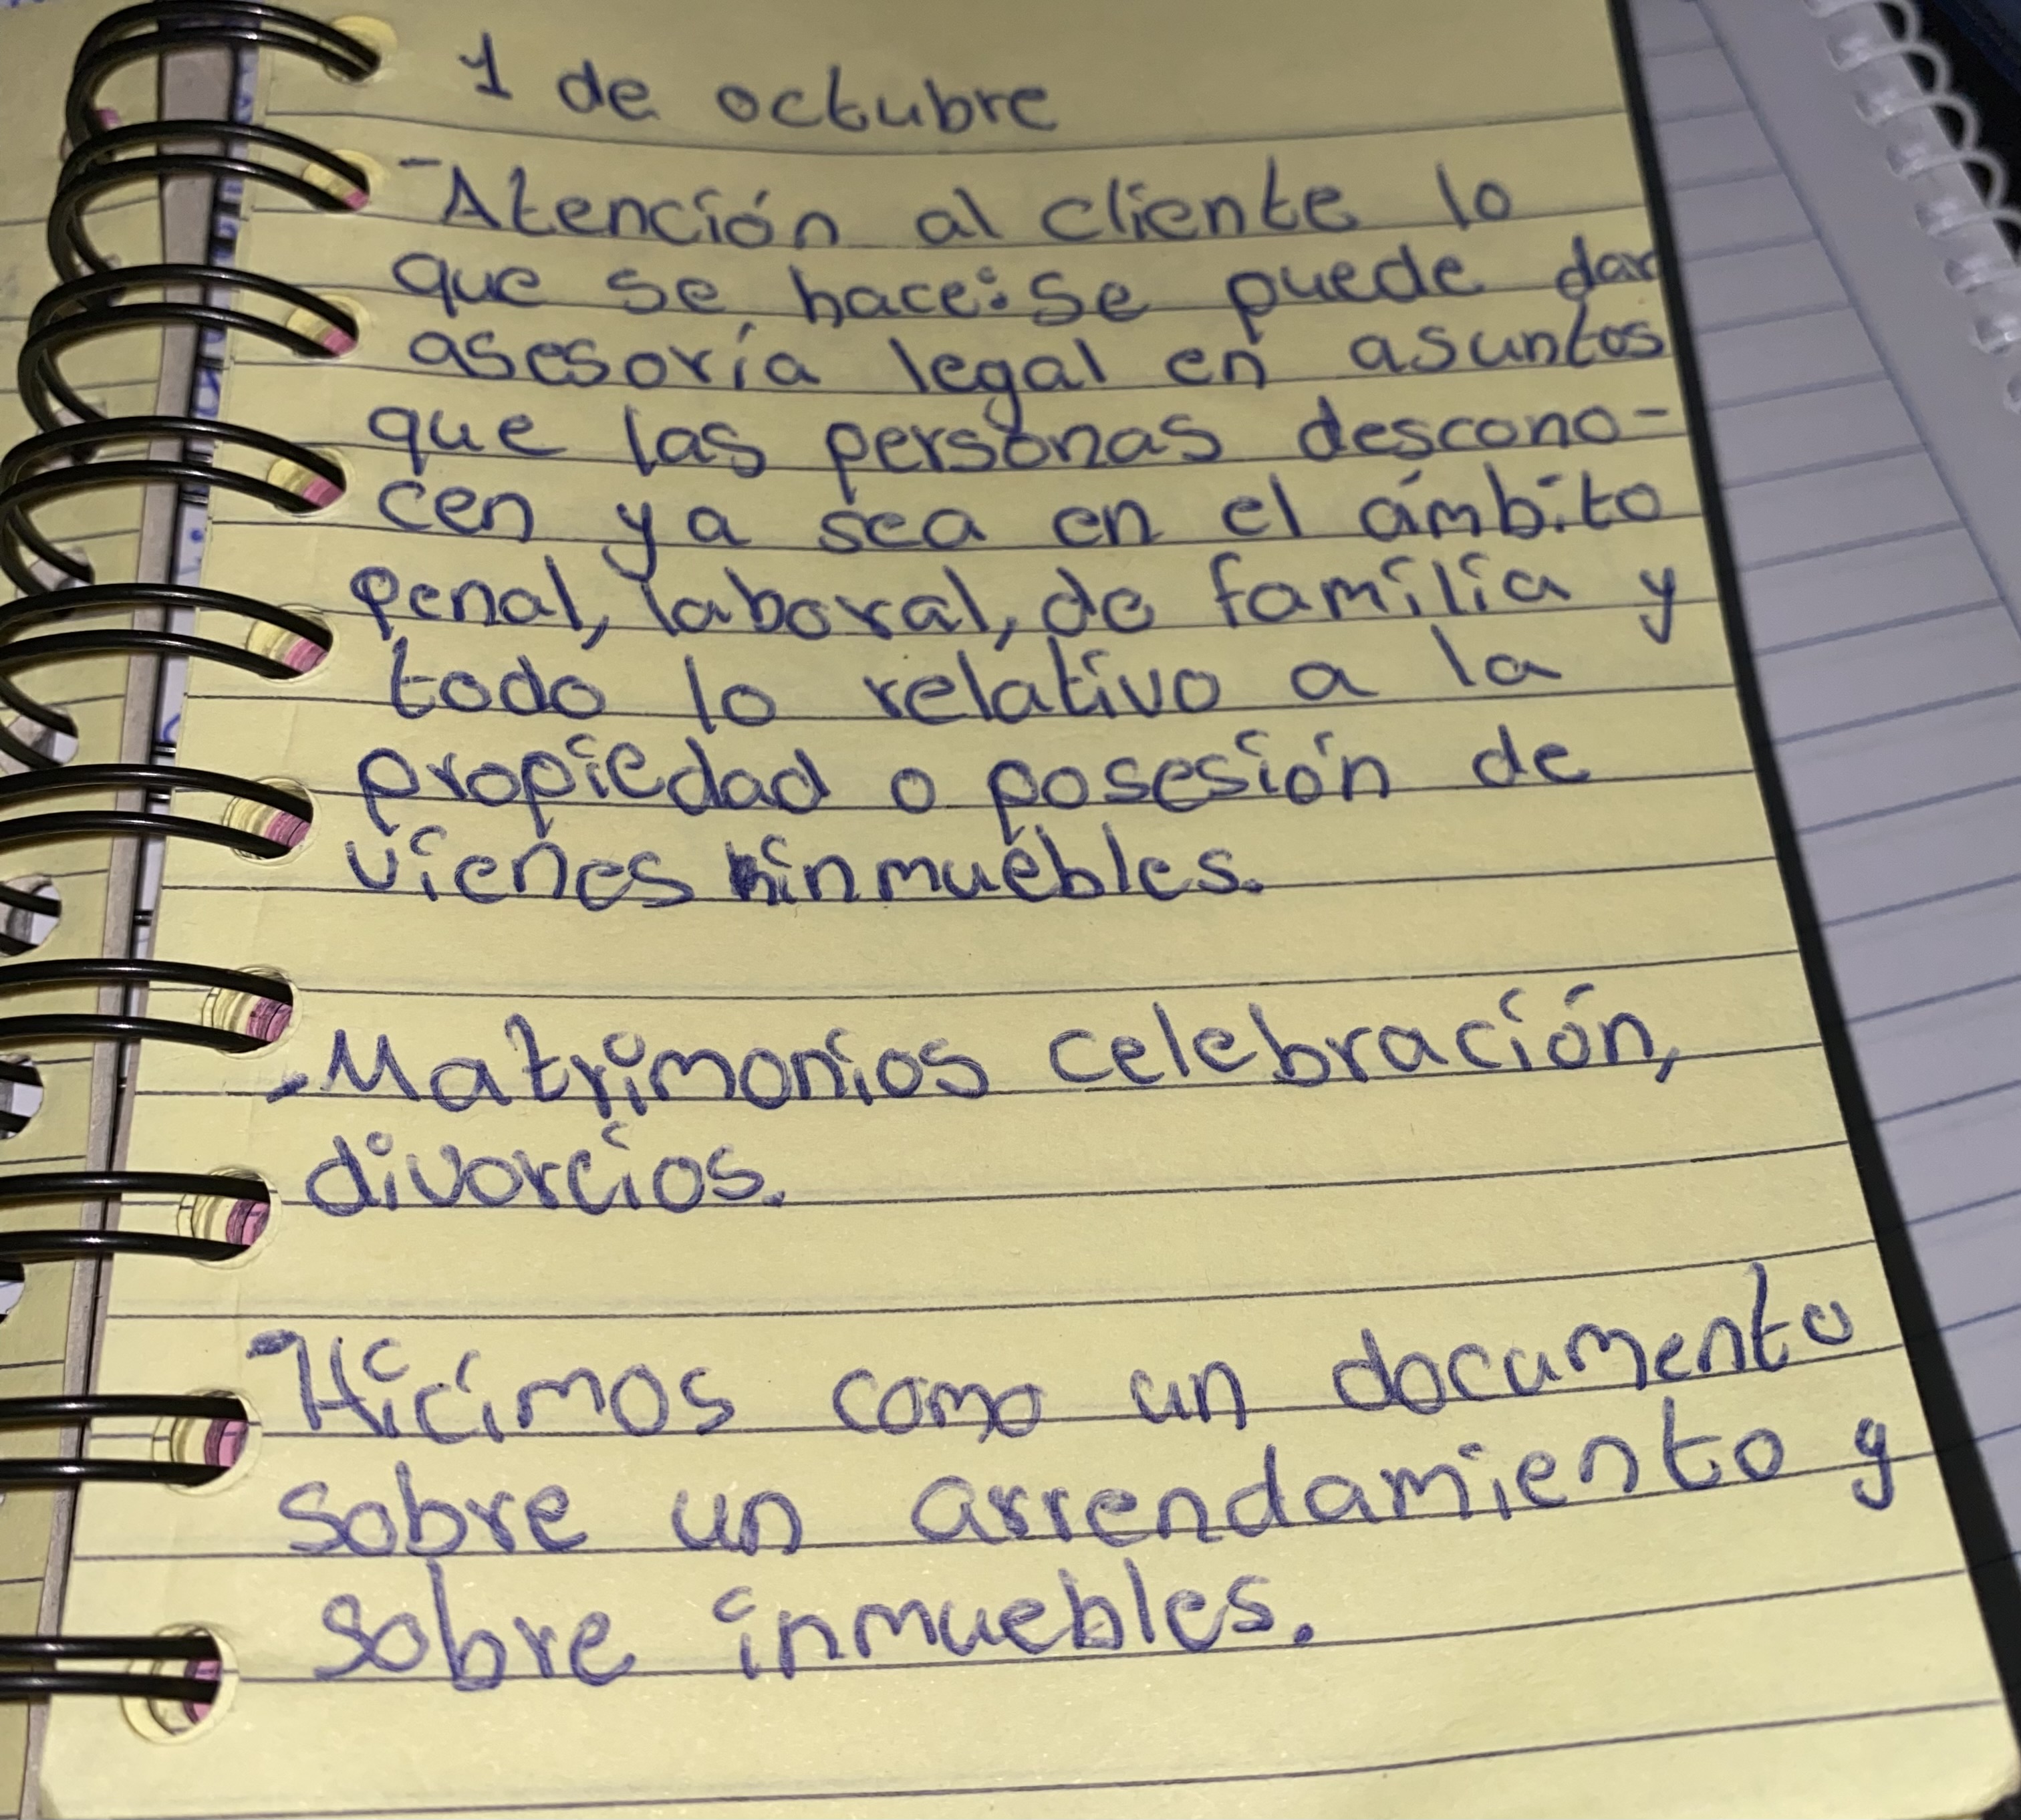 1 de octubre
-Atención al cliente lo
que se hace: Se puede dar
asesoría legal en asuntos
que las personas descono-
cen ya sea en el ámbito
penal, laboral, de familia y
todo lo relativo a la
propiedad o posesión de
vienes inmuebles.
-Matrimonios celebración,
divorcios.
-Hicimos como un documento
sobre un arrendamiento y
sobre inmuebles.